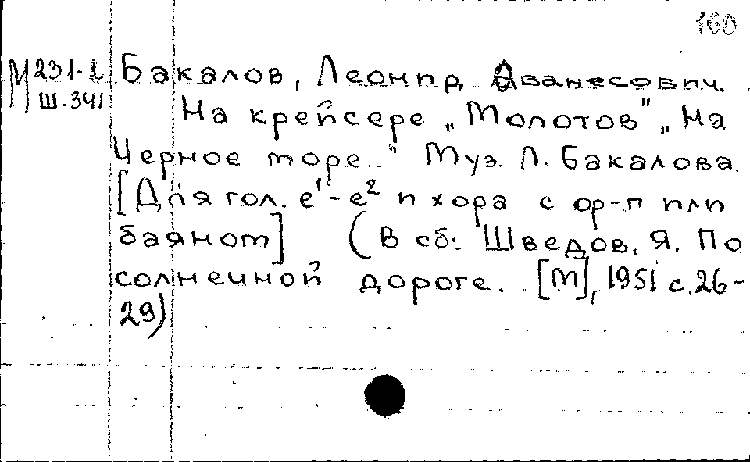 160
М 231-2
Ш.341
Бакалов, Леонид Аванесович.
На крейсере „Молотов", „На
Черное море.." Муз. Л. Бакалова.
[Для гол. e¹-e² и хора с ор-п или
баяном] (В сб: Шведов, Я. По
солнечной дороге. [М], 1951 с.26-
29)